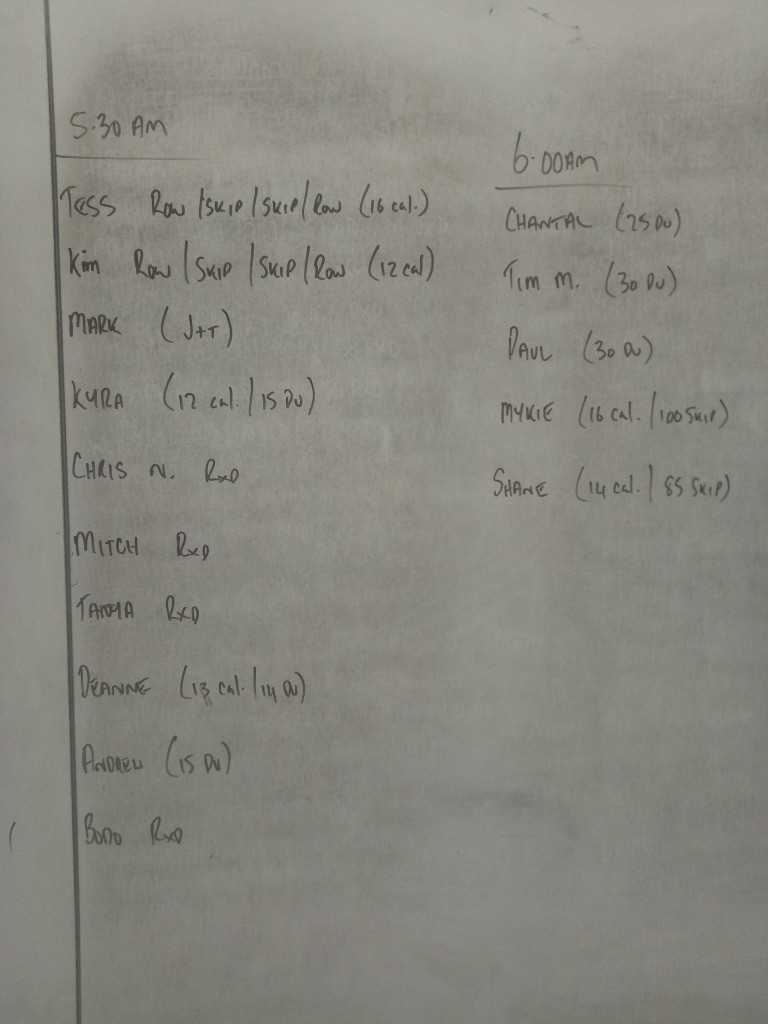 5.30 AM
TESS Row /SKIP/SKIP/Row (16 cal.)
Kim Row /SKIP/SKIP/Row (12 cal)
MARK (J+T)
KYRA (12 cal./15 DU)
CHRIS N. RxD
MITCH RxD
TANYA RxD
DEANNE (13 cal./14 DU)
ANDREW (15 DU)
BODO RxD
6.00AM
CHANTAL (25 DU)
TIM M. (30 DU)
PAUL (30 DU)
MYKIE (16 cal./100 SKIP)
SHANE (14 cal./85 SKIP)